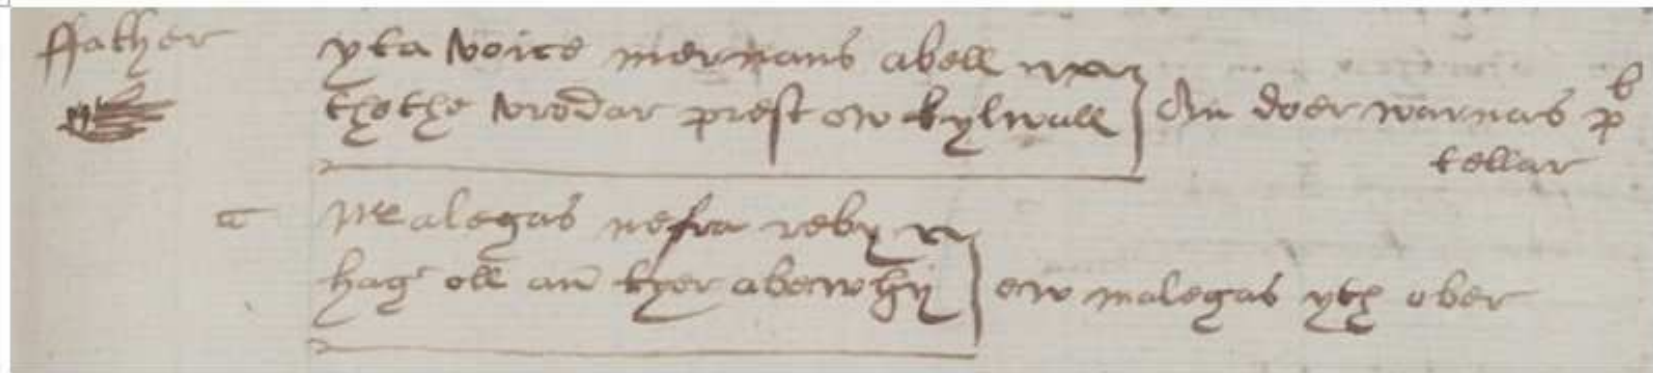 ffather yta voice mernans abell
thethe vrodar prest ow kylwall an doer warnas pᵇ
tellar
Malegas nefra reby
hag oll an tyer abewhy ew malegas yth ober